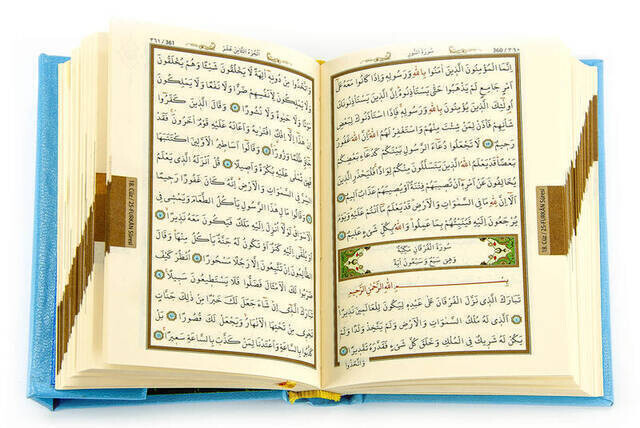 ٣٦٠ / 360
سُورَةُ النُّورِ
اِنَّمَا الْمُؤْمِنُونَ الَّذ۪ينَ اٰمَنُوا بِاللّٰهِ وَرَسُولِه۪ وَاِذَا كَانُوا مَعَهُ عَلٰٓى
اَمْرٍ جَامِعٍ لَمْ يَذْهَبُوا حَتّٰى يَسْتَأْذِنُوهُ اِنَّ الَّذ۪ينَ يَسْتَأْذِنُونَكَ
اُو۬لٰٓئِكَ الَّذ۪ينَ يُؤْمِنُونَ بِاللّٰهِ وَرَسُولِه۪ فَاِذَا اسْتَأْذَنُوكَ لِبَعْضِ
شَأْنِهِمْ فَأْذَنْ لِمَنْ شِئْتَ مِنْهُمْ وَاسْتَغْفِرْ لَهُمُ اللّٰهَ اِنَّ اللّٰهَ غَفُورٌ
رَح۪يمٌ لَا تَجْعَلُوا دُعَٓاءَ الرَّسُولِ بَيْنَكُمْ كَدُعَٓاءِ بَعْضِكُمْ
بَعْضًا قَدْ يَعْلَمُ اللّٰهُ الَّذ۪ينَ يَتَسَلَّلُونَ مِنْكُمْ لِوَاذًا فَلْيَحْذَرِ الَّذ۪ينَ
يُخَالِفُونَ عَنْ اَمْرِه۪ٓ اَنْ تُص۪يبَهُمْ فِتْنَةٌ اَوْ يُص۪يبَهُمْ عَذَابٌ اَل۪يمٌ
اَلَٓا اِنَّ لِلّٰهِ مَا فِي السَّمٰوَاتِ وَالْاَرْضِ قَدْ يَعْلَمُ مَٓا اَنْتُمْ عَلَيْهِ وَيَوْمَ
يُرْجَعُونَ اِلَيْهِ فَيُنَبِّئُهُمْ بِمَا عَمِلُوا وَاللّٰهُ بِكُلِّ شَيْءٍ عَل۪يمٌ
سُورَةُ الْفُرْقَانِ مَكِّيَّةٌ
وَهِيَ سَبْعٌ وَسَبْعُونَ اٰيَةً
بِسْمِ اللّٰهِ الرَّحْمٰنِ الرَّح۪يمِ
تَبَارَكَ الَّذ۪ي نَزَّلَ الْفُرْقَانَ عَلٰى عَبْدِه۪ لِيَكُونَ لِلْعَالَم۪ينَ نَذ۪يرًا
اَلَّذ۪ي لَهُ مُلْكُ السَّمٰوَاتِ وَالْاَرْضِ وَلَمْ يَتَّخِذْ وَلَدًا وَلَمْ
يَكُنْ لَهُ شَر۪يكٌ فِي الْمُلْكِ وَخَلَقَ كُلَّ شَيْءٍ فَقَدَّرَهُ تَقْد۪يرًا
وَاتَّخَذُوا
18. Cüz / 25-FURKÂN Sûresi
اَلْجُزْءُ الثَّامِنَ عَشَرَ
٣٦١ / 361
وَاتَّخَذُوا مِنْ دُونِه۪ٓ اٰلِهَةً لَا يَخْلُقُونَ شَيْـًٔا وَهُمْ يُخْلَقُونَ
وَلَا يَمْلِكُونَ لِاَنْفُسِهِمْ ضَرًّا وَلَا نَفْعًا وَلَا يَمْلِكُونَ
مَوْتًا وَلَا حَيٰوةً وَلَا نُشُورًا وَقَالَ الَّذ۪ينَ كَفَرُٓوا
اِنْ هٰذَٓا اِلَّٓا اِفْكٌ افْتَرٰيهُ وَاَعَانَهُ عَلَيْهِ قَوْمٌ اٰخَرُونَ فَقَدْ
جَٓاؤُ۫ ظُلْمًا وَزُورًا وَقَالُٓوا اَسَاط۪يرُ الْاَوَّل۪ينَ اكْتَتَبَهَا
فَهِيَ تُمْلٰى عَلَيْهِ بُكْرَةً وَاَص۪يلًا قُلْ اَنْزَلَهُ الَّذ۪ي يَعْلَمُ
السِّرَّ فِي السَّمٰوَاتِ وَالْاَرْضِ اِنَّهُ كَانَ غَفُورًا رَح۪يمًا
وَقَالُوا مَالِ هٰذَا الرَّسُولِ يَأْكُلُ الطَّعَامَ وَيَمْش۪ي فِي
الْاَسْوَاقِ لَوْلَٓا اُنْزِلَ اِلَيْهِ مَلَكٌ فَيَكُونَ مَعَهُ نَذ۪يرًا
اَوْ يُلْقٰٓى اِلَيْهِ كَنْزٌ اَوْ تَكُونُ لَهُ جَنَّةٌ يَأْكُلُ مِنْهَا وَقَالَ
الظَّالِمُونَ اِنْ تَتَّبِعُونَ اِلَّا رَجُلًا مَسْحُورًا اُنْظُرْ كَيْفَ
ضَرَبُوا لَكَ الْاَمْثَالَ فَضَلُّوا فَلَا يَسْتَط۪يعُونَ سَب۪يلًا
تَبَارَكَ الَّذ۪ٓي اِنْ شَٓاءَ جَعَلَ لَكَ خَيْرًا مِنْ ذٰلِكَ جَنَّاتٍ
تَجْر۪ي مِنْ تَحْتِهَا الْاَنْهَارُ وَيَجْعَلْ لَكَ قُصُورًا بَلْ
كَذَّبُوا بِالسَّاعَةِ وَاَعْتَدْنَا لِمَنْ كَذَّبَ بِالسَّاعَةِ سَع۪يرًا
18. Cüz / 25-FURKÂN Sûresi